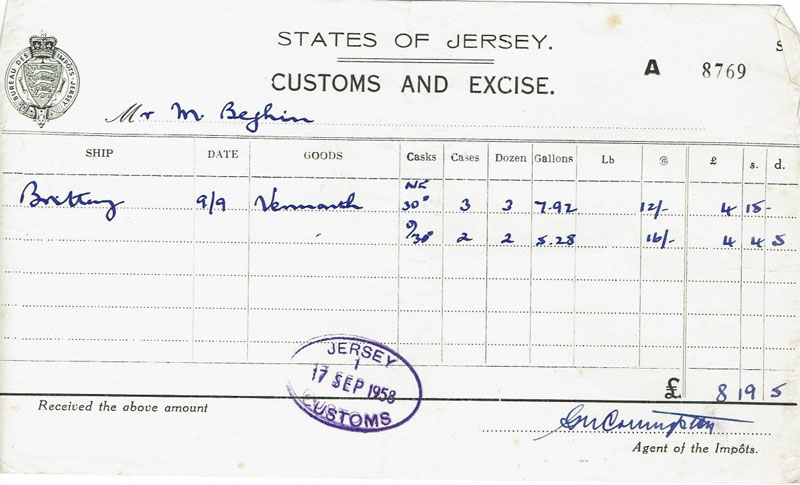 BUREAU DES IMPÔTS · JERSEY
STATES OF JERSEY.
CUSTOMS AND EXCISE.
A 8769
S
Mr M. Beghin
SHIP DATE GOODS Casks Cases Dozen Gallons Lb @ £ s. d.
Brittany 9/9 Vermouth NE 30° 3 3 7.92 12/- 4 15 -
O/30° 2 2 5.28 16/- 4 4 5
JERSEY
1
17 SEP 1958
CUSTOMS
£ 8 19 5
Received the above amount
Agent of the Impôts.